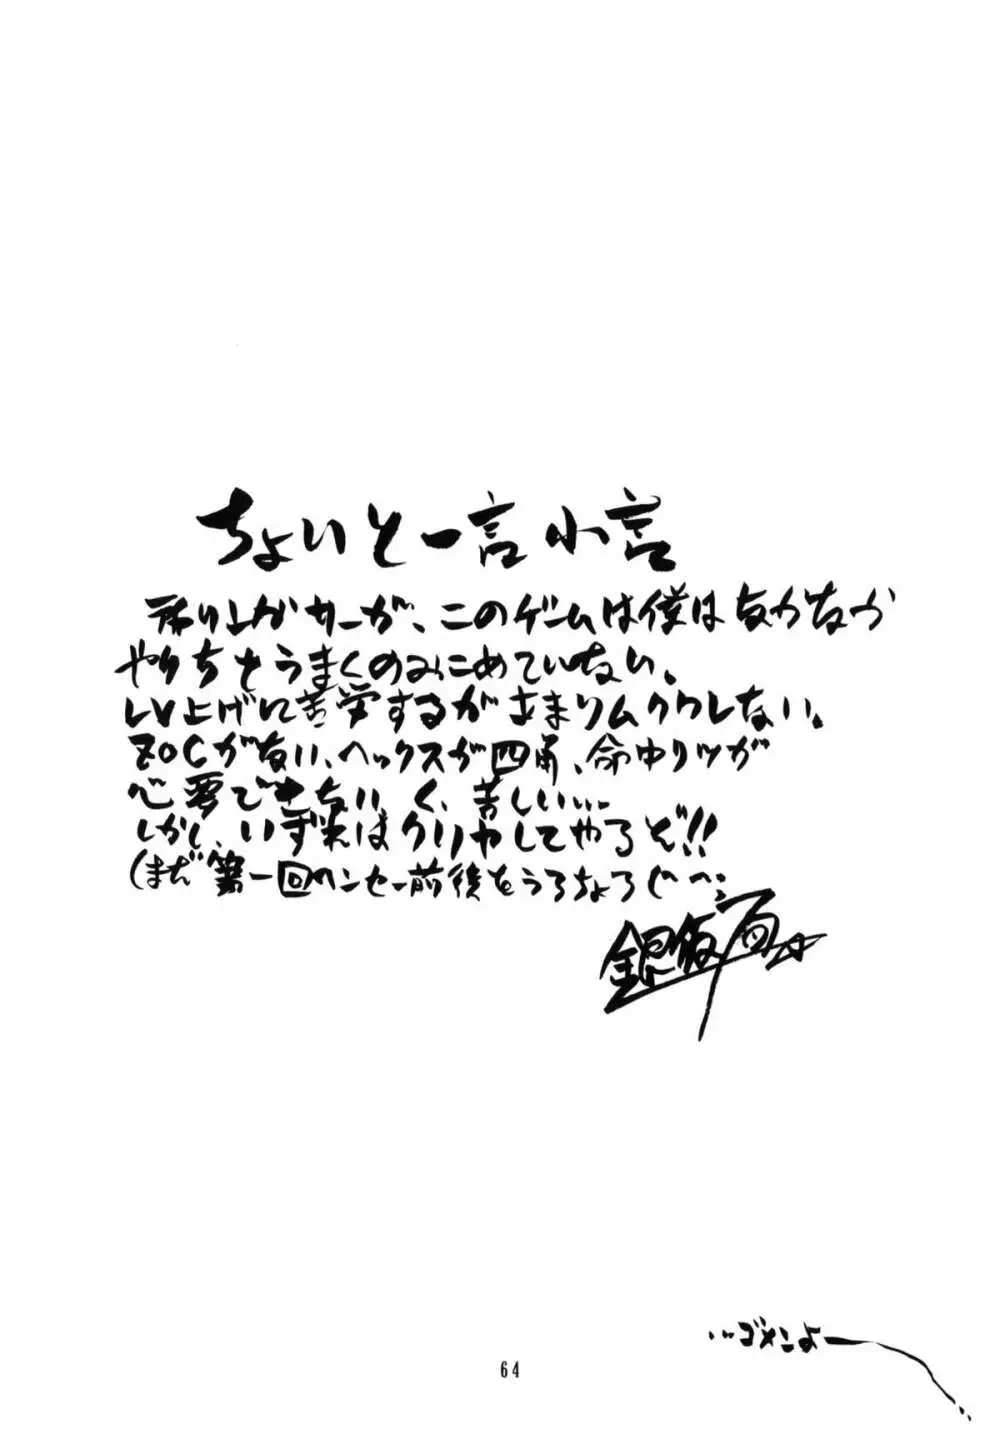 ちょいと一言小言
このゲームは僕はなかなか
やりちとうまくのみこめていない。
LV上げに苦学するがあまりムクワレない。
ZOCがない、ヘックスが四角、命中リツが
苦しい…
しかし、いずれはクリヤしてやるぞ!!
(まだ第一回のヘンセー前後をうろちょろ
銀仮面
…ゴメンよー
64